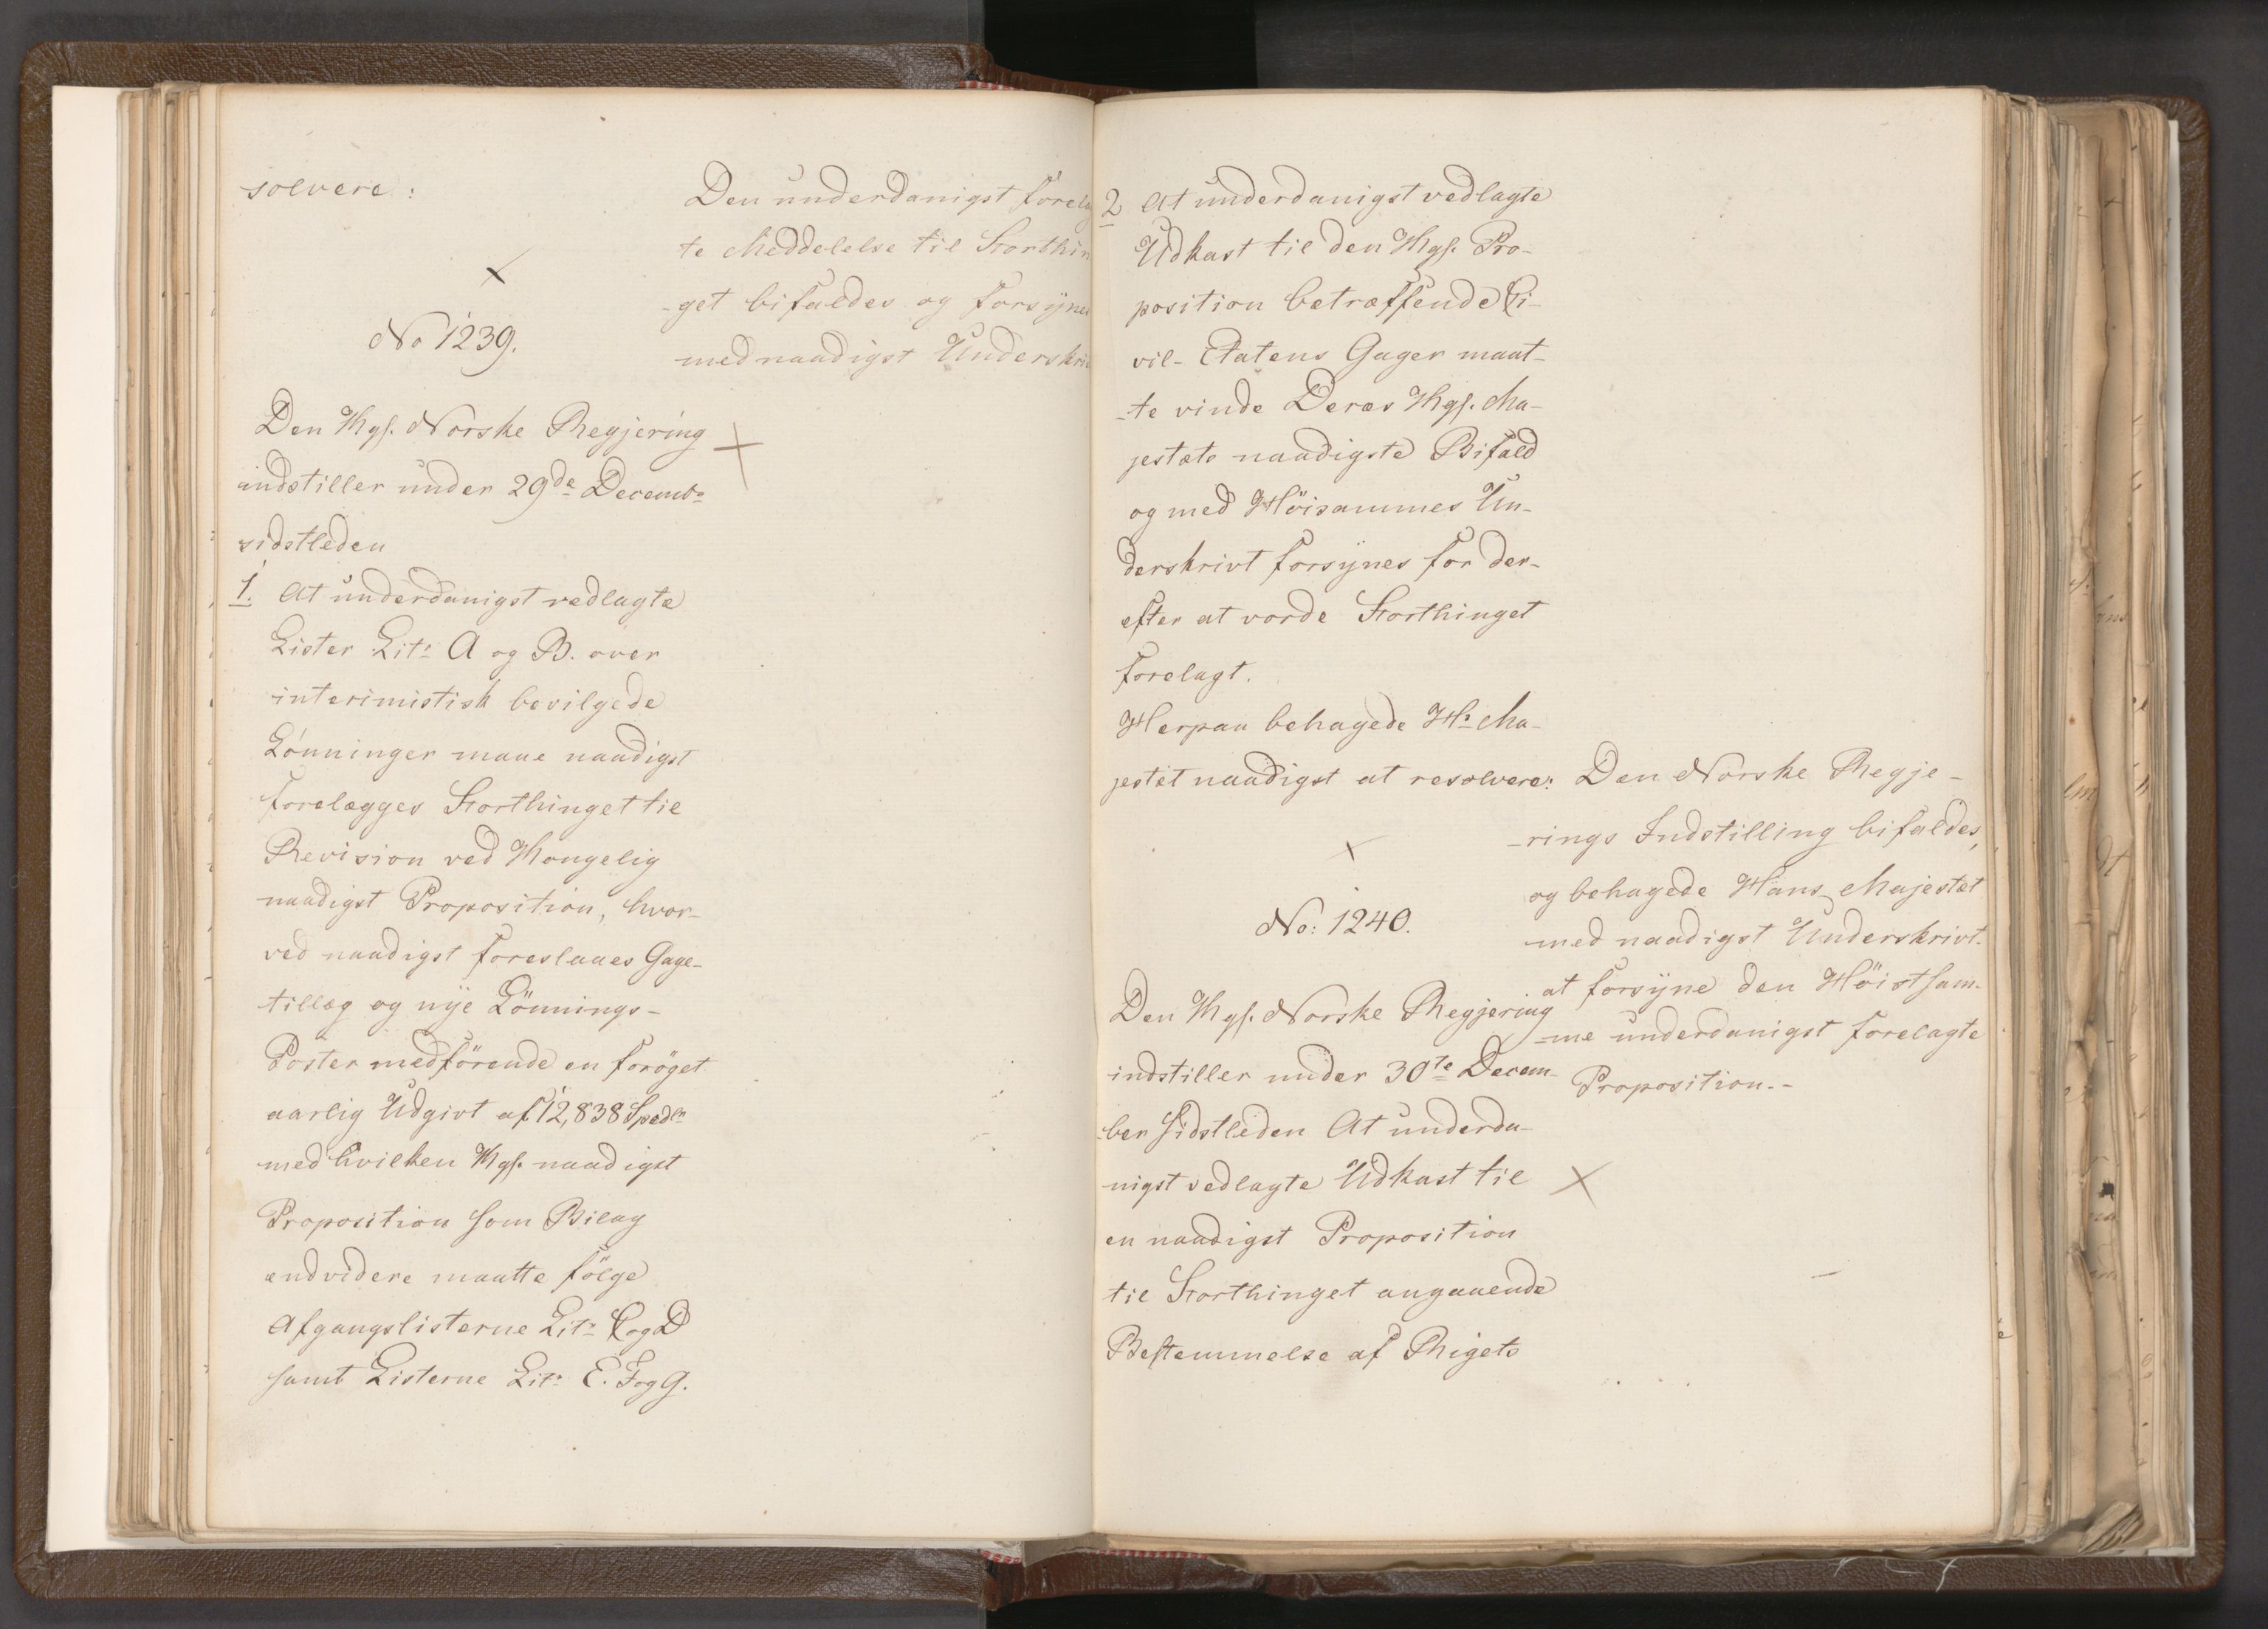 solvere:
Den underdanigst forelag
te Meddelelse til Storthin
-get bifaldes og forsynes
med naadigst Underskri
No 1239.
Den Kgl. Norske Regjering
indstiller under 29de Decemb.
sidstleden
1. At underdanigst vedlagte
Lister Litr. A og B. over
interimistisk bevilgede
Lönninger maae naadigst
forelægges Storthinget til
Revision ved Kongelig
naadigst Proposition, hvor-
ved naadigst foreslaaes Gage-
tillæg og nye Lönnings-
Poster medförende en foröget
aarlig Udgivt af 12,838 Spedlr
med hvilken Kgl. naadigst
Proposition som Bilag
endvidere maatte fölge
Afgangslisterne Litr. C og D
samt Listerne Litr. E. F og G.
2 At underdanigst vedlagte
Udkast til den Kgl. Pro-
position betræffende Ci-
vil-Etatens Gager maat-
-te vinde Deres Kgl. Ma-
jestæts naadigste Bifald
og med Höisammes Un-
derskrivt forsynes for der-
efter at vorde Storthinget
forelagt.
Herpaa behagede Hs. Ma-
jestæt naadigst at resolvere:
Den Norske Regje-
-rings Indstilling bifaldes,
og behagede Hans Majestæt
med naadigst Underskrivt.
at forsyne den Höistsam-
-me underdanigst forelagte
Proposition.-
No: 1240.
Den Kgl. Norske Regjering
indstiller under 30te Decem-
-ber sidstleden At underda-
nigst vedlagte Udkast til
en naadigst Proposition
til Storthinget angaaende
Bestemmelse af Rigets